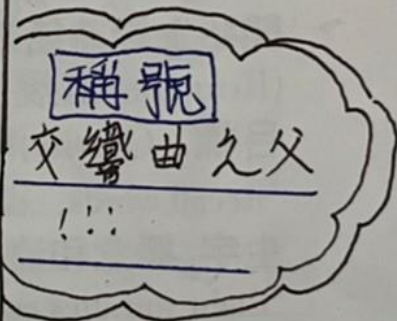 稱號
交響曲之父
!!!